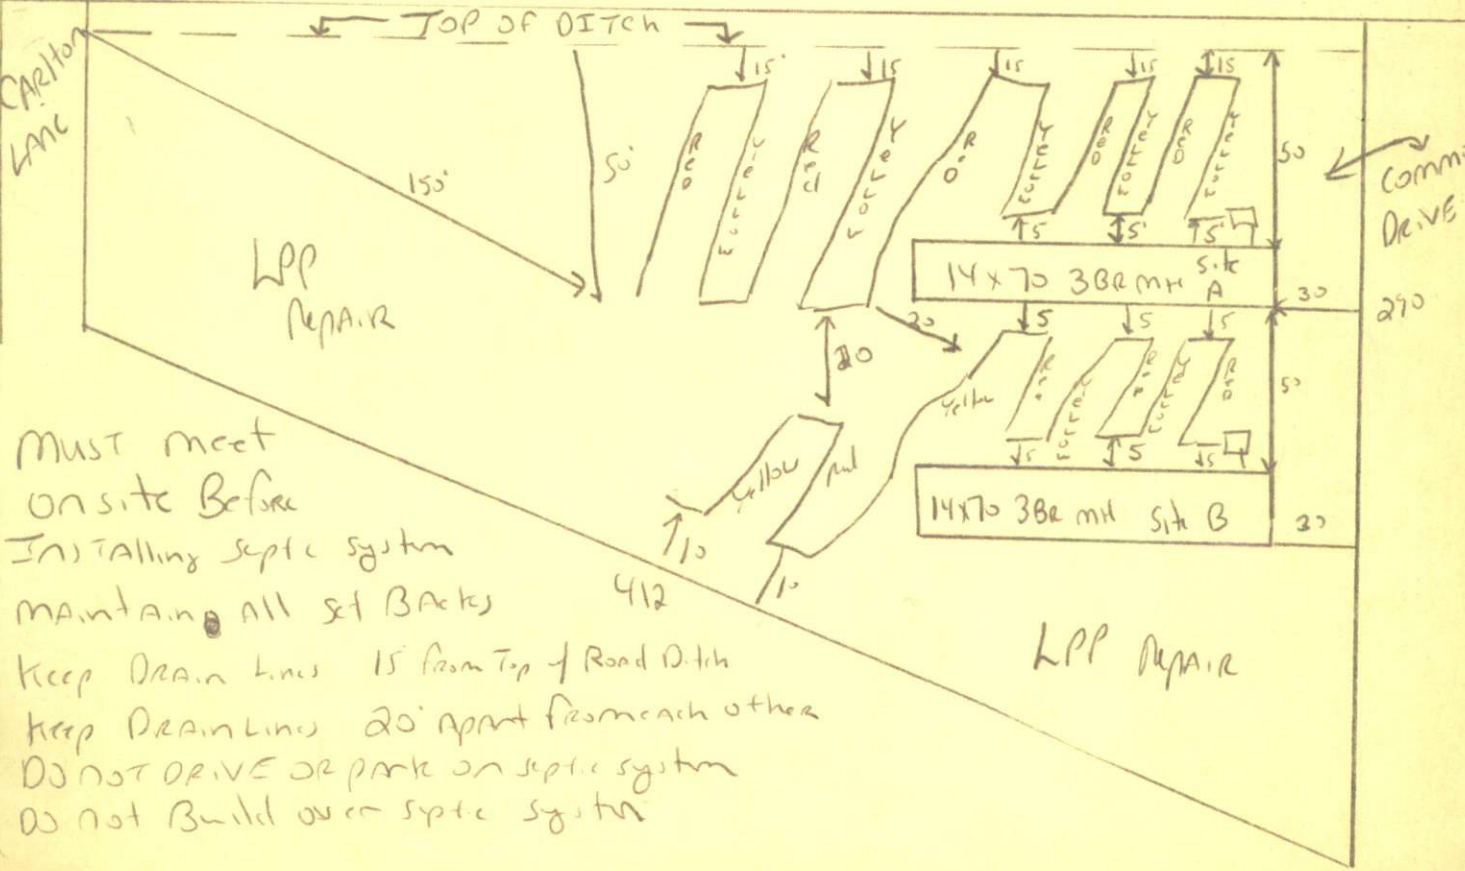 CARlton
LANE
TOP OF DITCH
15'
15
15
15
15
50'
50
150'
Red
Yellow
Red
Yellow
Red
Yellow
Red
Yellow
Red
Yellow
5
5'
5'
Comm
DRIVE
LPP
RepAIR
14 x 70 3BR MH Site
A
30
290
20
5
5
5
20
Yellow
Red
Yellow
Red
Yellow
Red
50
5
5
5
Yellow
Red
10
10
14x70 3BR MH Site B
30
412
LPP RepAIR
Must meet
onsite Before
InSTAlling septic system
MAintAin All Set BAcks
Keep DRAin Lines 15 from Top of Road Ditch
Keep DRAin Lines 20' Apart from each other
DO noT DRIVE OR pARK on septic system
DO not Build over septic system